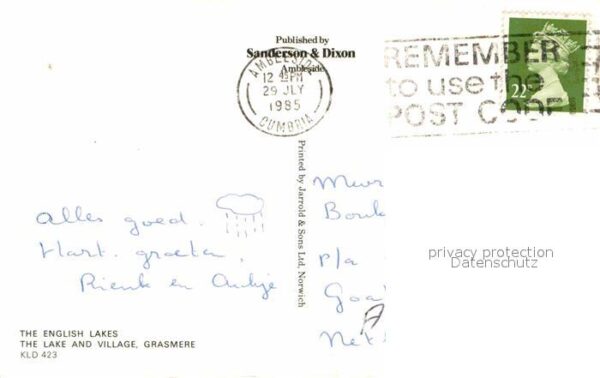 Published by
Sanderson & Dixon
Ambleside
AMBLESIDE
12 45 PM
29 JLY
1985
CUMBRIA
REMEMBER
to use the
POST CODE
22
Printed by Jarrold & Sons Ltd, Norwich
Alles goed.
Hart. groeten,
Rienk en
p/a
privacy protection
Datenschutz
THE ENGLISH LAKES
THE LAKE AND VILLAGE, GRASMERE
KLD 423